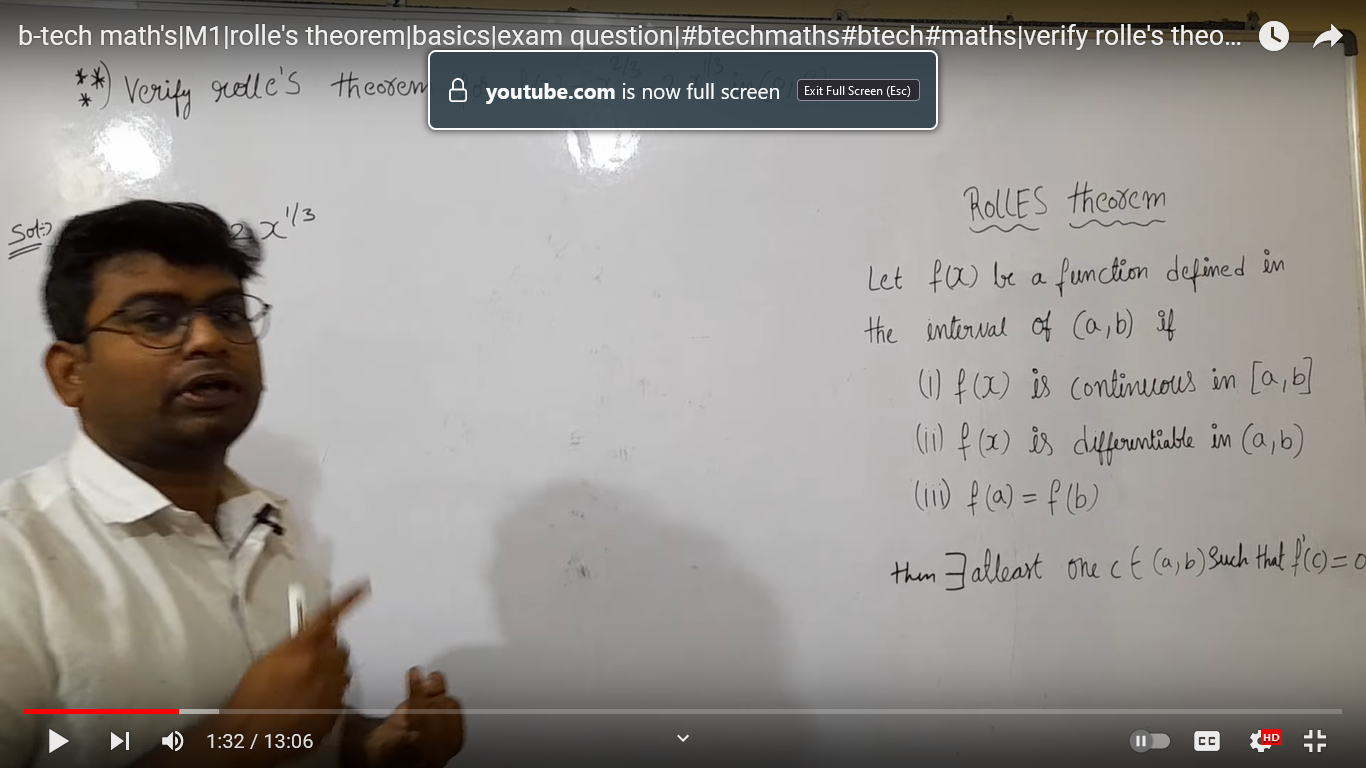 b-tech math's|M1|rolle's theorem|basics|exam question|#btechmaths#btech#maths|verify rolle's theo...
youtube.com is now full screen Exit Full Screen (Esc)
**
*) Verify rolle's theorem
Sol:-
2. x^1/3
ROLLES theorem
Let f(x) be a function defined in
the interval of (a,b) if
(i) f(x) is continuous in [a,b]
(ii) f(x) is differentiable in (a,b)
(iii) f(a) = f(b)
then ∃ atleast one c ∈ (a,b) Such that f'(c) = 0
1:32 / 13:06
CC
HD